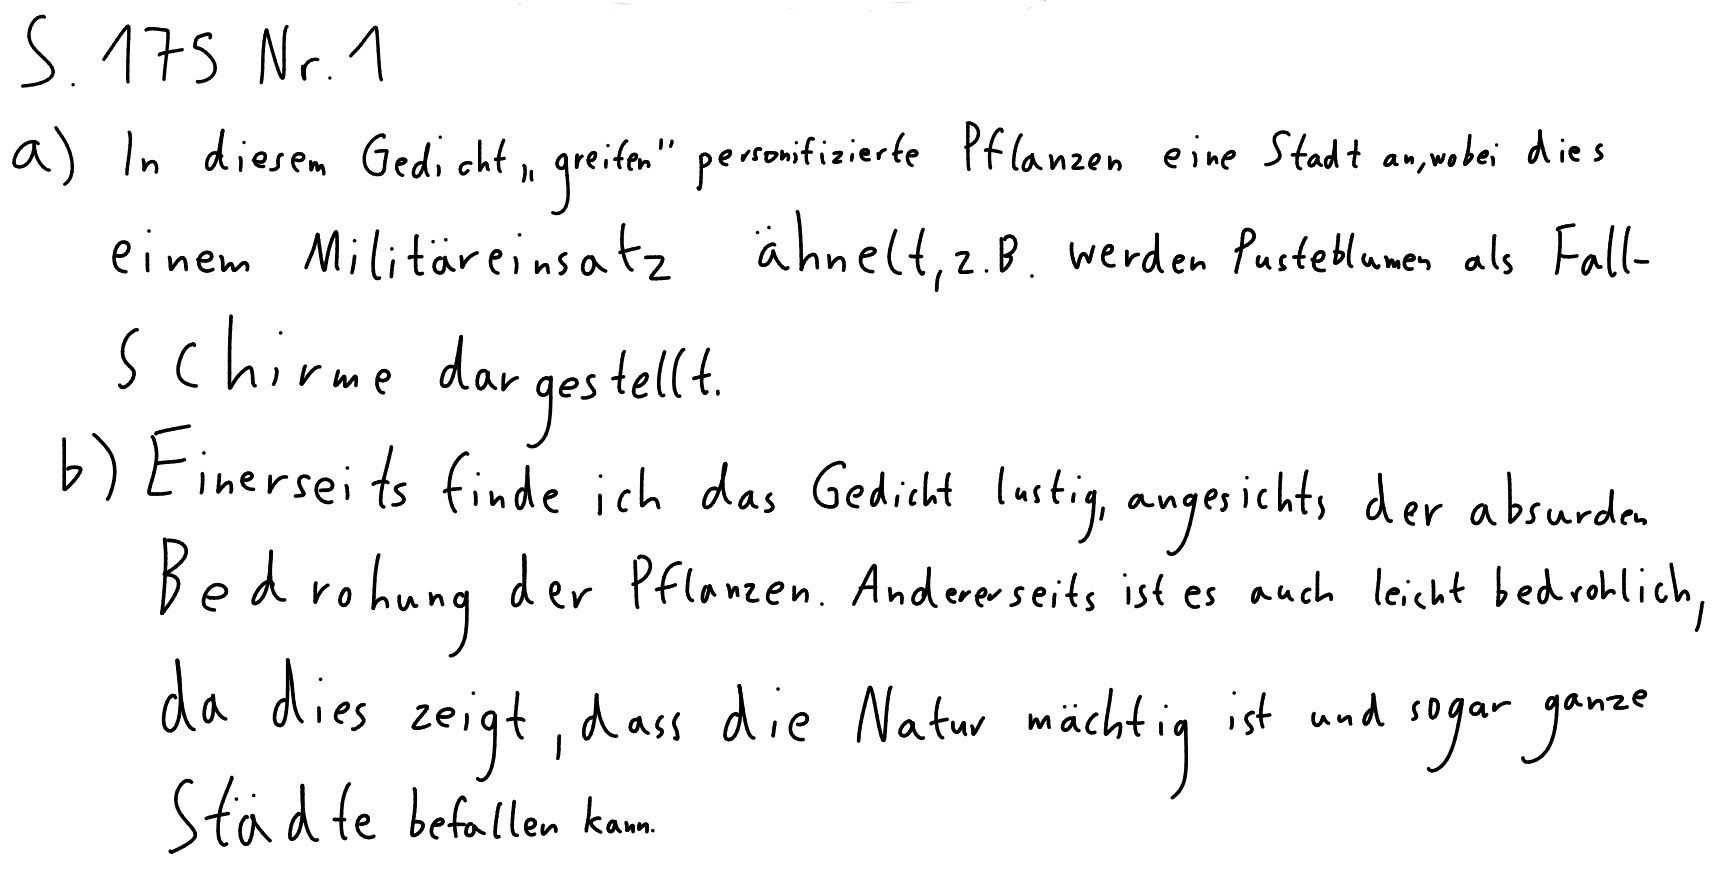 S. 175 Nr. 1
a) In diesem Gedicht „greifen" personifizierte Pflanzen eine Stadt an, wobei dies
einem Militäreinsatz ähnelt, z.B. werden Pusteblumen als Fall-
schirme dargestellt.
b) Einerseits finde ich das Gedicht lustig, angesichts der absurden
Bedrohung der Pflanzen. Andererseits ist es auch leicht bedrohlich,
da dies zeigt, dass die Natur mächtig ist und sogar ganze
Städte befallen kann.